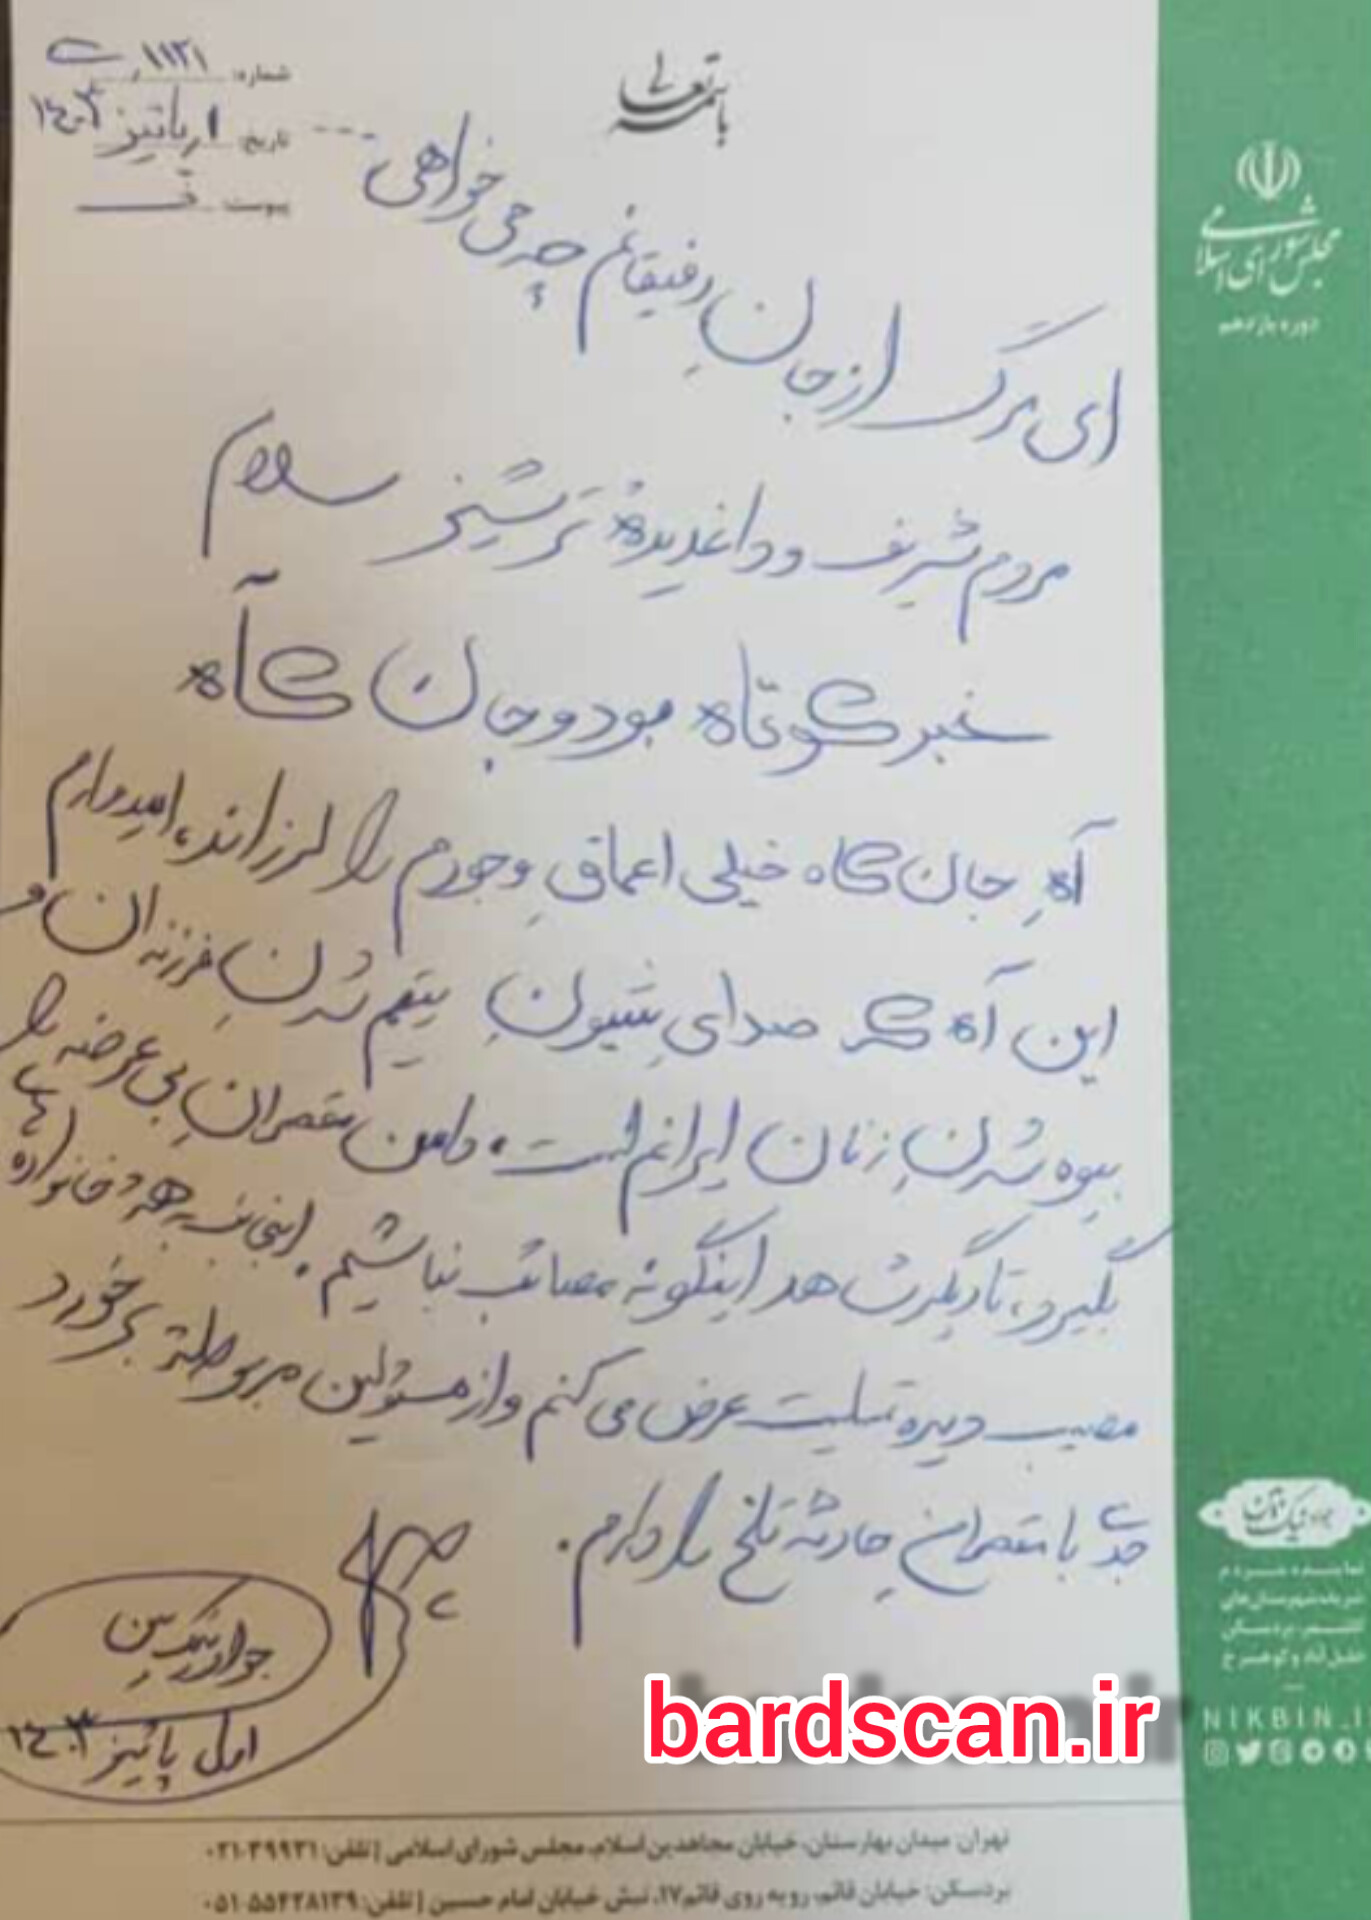 باسمه تعالی
شماره: ۱۱۲۱
تاریخ: ۱ پائیز ۱۴۰۳
پیوست:
ای مرگ از جانِ رفیقانم چه می خواهی؟ ...
مردم شریف و داغدیدهٔ ترشیز سلام
خبر کوتاه بود و جان کاه
آهِ جان کاه خیلی اعماقِ وجودم را لرزاند، امیدوارم
این آه که صدایِ شیونِ یتیم شدنِ فرزندان و
بیوه شدنِ زنان ایرانم است. دامن مقصرانِ بی عرضه را
بگیرد، تا دیگر شاهد اینگونه مصائب نباشیم. اینجانب به خانواده های
مصیبت دیده تسلیت عرض می کنم و از مسئولین مربوطه برخورد
جدی با مقصرانِ حادثه تلخ را دارم.
جواد نیک بین
اول پائیز ۱۴۰۳
مجلس شورای اسلامی
دوره یازدهم
جواد نیک بین
نماینده مردم
شریف شهرستان‌های
کاشمر، بردسکن
خلیل آباد و کوهسرخ
NIKBIN_I
bardscan.ir
تهران: میدان بهارستان، خیابان مجاهدین اسلام، مجلس شورای اسلامی | تلفن: ۰۲۱-۳۹۹۳۱
بردسکن: خیابان قائم، رو به روی قائم ۱۷، نبش خیابان امام حسین | تلفن: ۰۵۱-۵۵۴۲۸۱۳۹